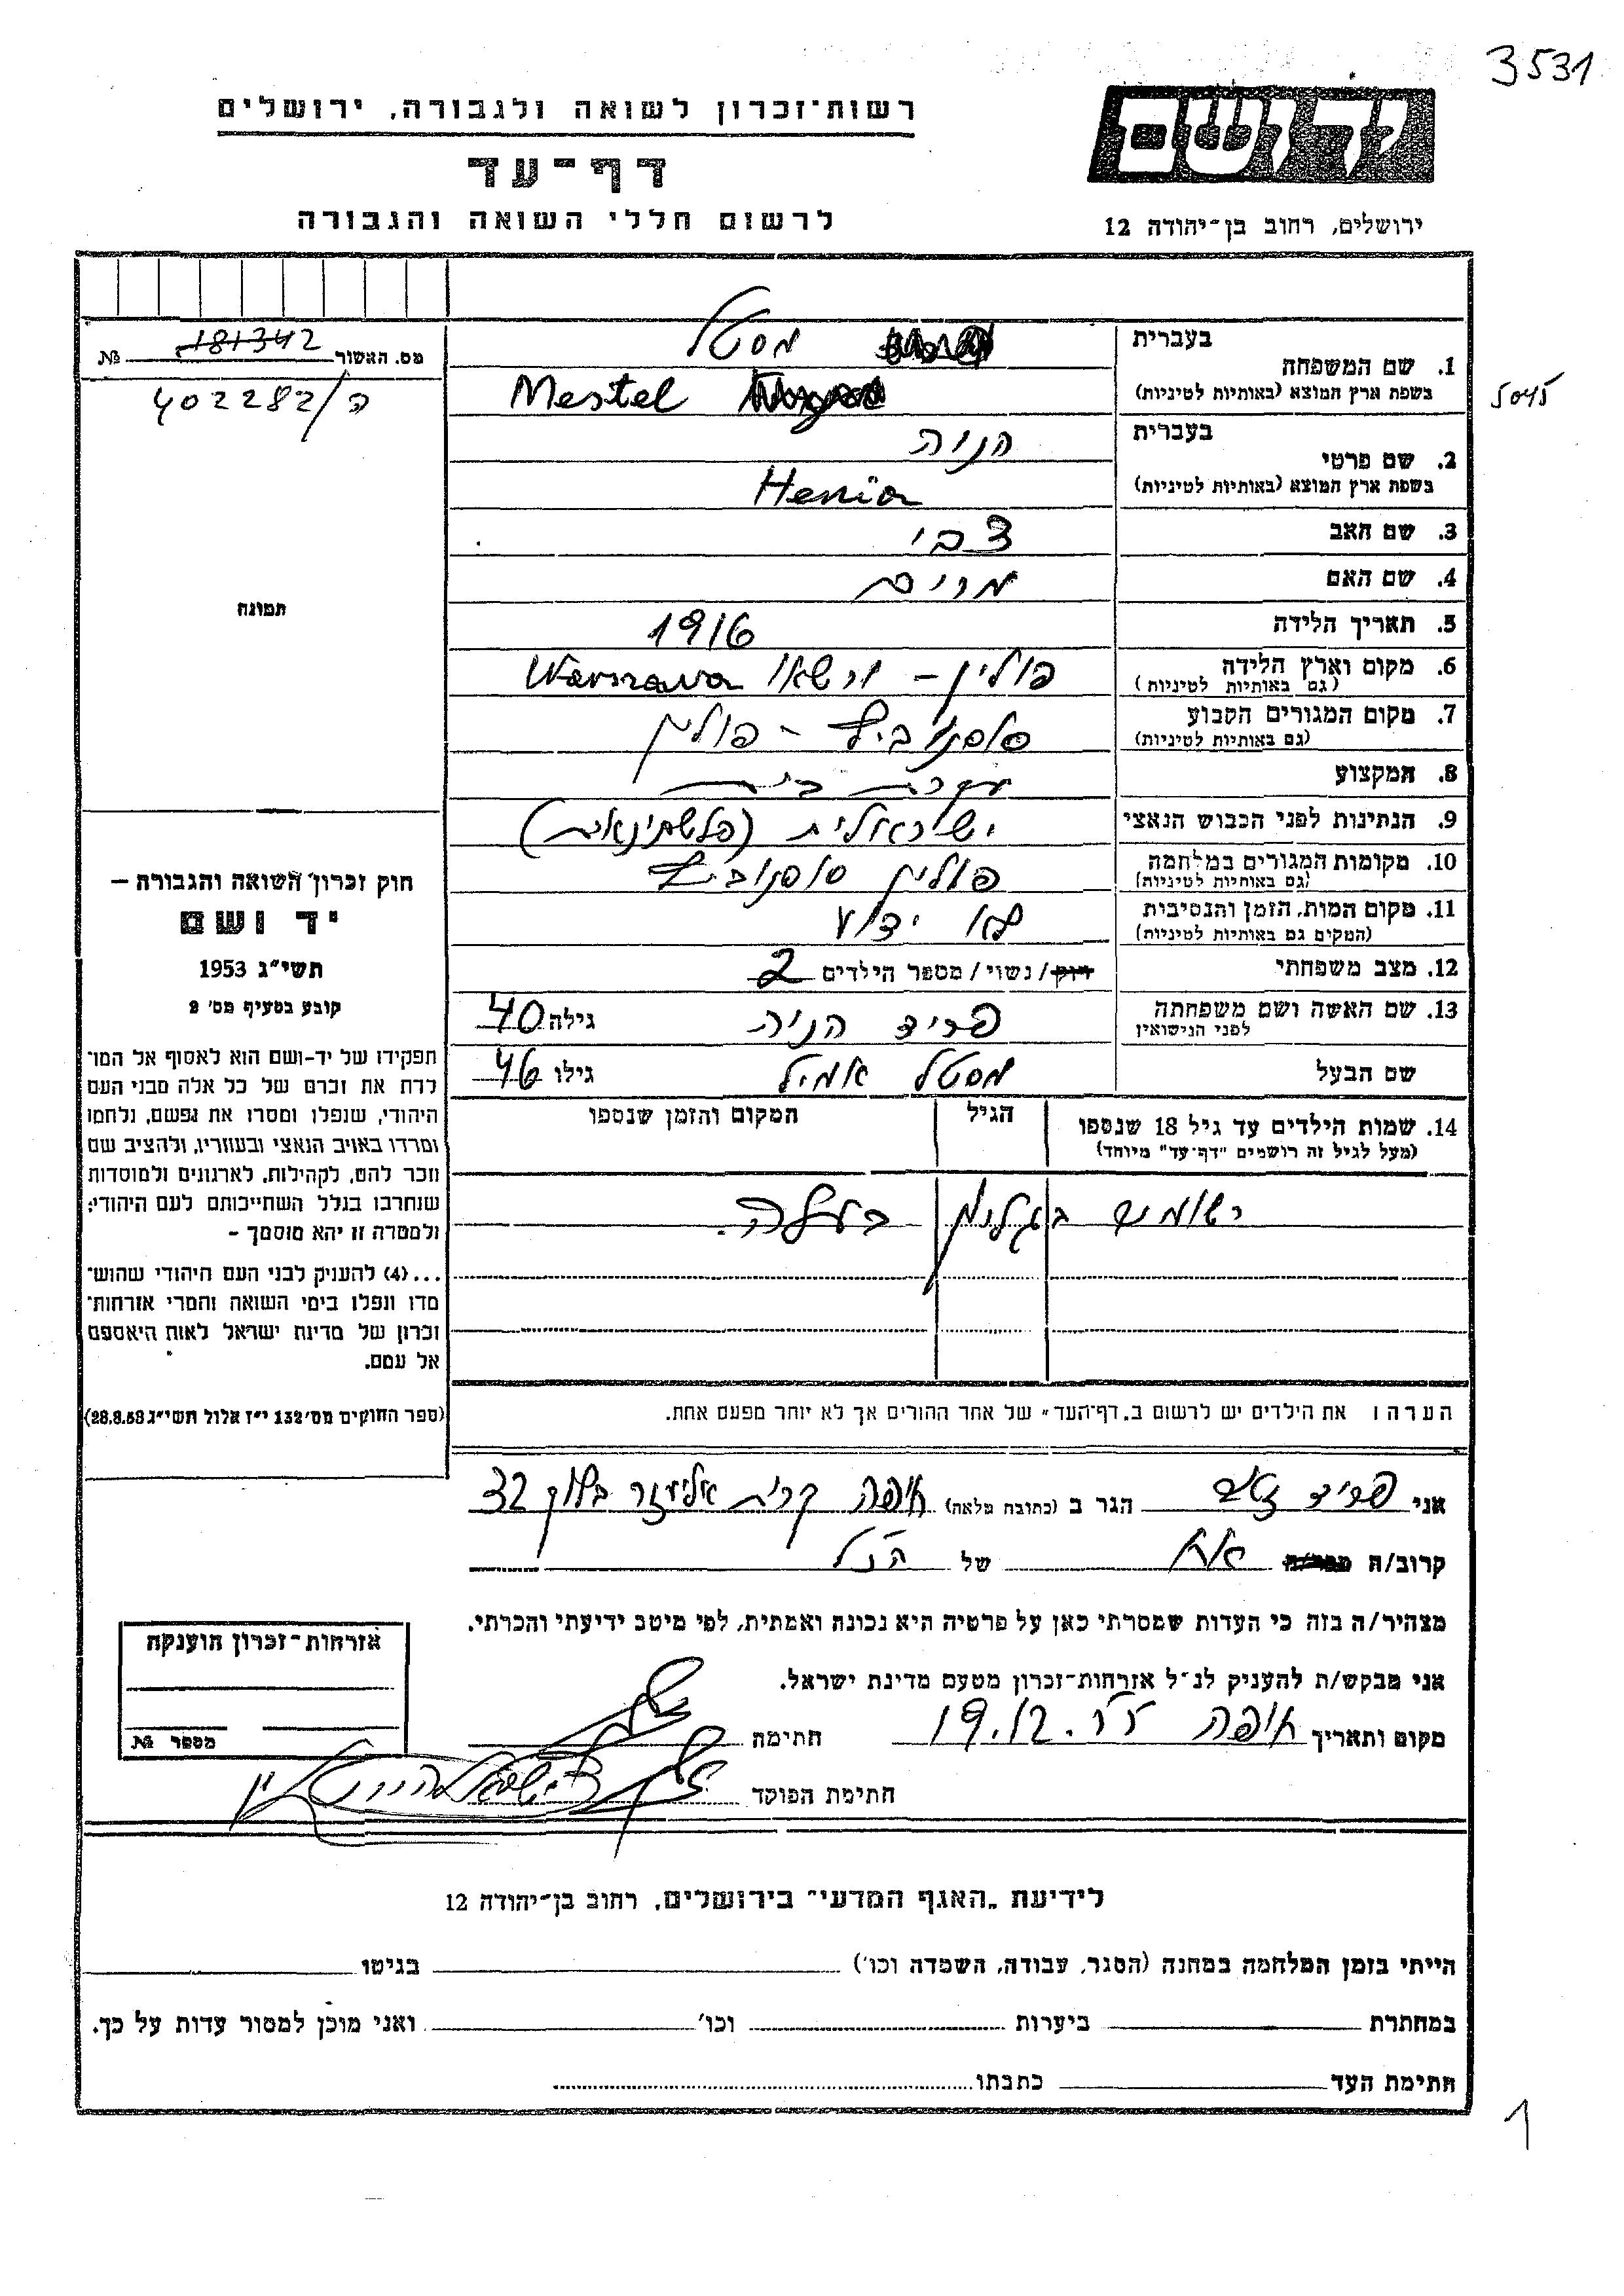 3531
יד ושם
רשות־זכרון לשואה ולגבורה, ירושלים
דף־עד
לרשום חללי השואה והגבורה
ירושלים, רחוב בן־יהודה 12
מס. האשור 181342 №
ה/402282
5045
1. שם המשפחה
בעברית מסטל
בשפת ארץ המוצא (באותיות לטיניות) Mestel
2. שם פרטי
בעברית הניה
בשפת ארץ המוצא (באותיות לטיניות) Henia
3. שם האב צבי
4. שם האם מרים
5. תאריך הלידה 1916
6. מקום וארץ הלידה פולין – ורשאו Warszawa
(גם באותיות לטיניות)
7. מקום המגורים הקבוע סוסנוביץ – פולין
(גם באותיות לטיניות)
8. המקצוע עקרת בית
9. הנתינות לפני הכבוש הנאצי ישראלית (פלשתינאית)
10. מקומות המגורים במלחמה פולין סוסנוביץ
(גם באותיות לטיניות)
11. מקום המות, הזמן והנסיבות לא ידוע
(המקום גם באותיות לטיניות)
12. מצב משפחתי רווק/נשוי/מספר הילדים 2
13. שם האשה ושם משפחתה פריד הניה גילה 40
לפני הנישואין
שם הבעל מסטל אמיל גילו 46
14. שמות הילדים עד גיל 18 שנספו הגיל המקום והזמן שנספו
(מעל לגיל זה רושמים "דף־עד" מיוחד)
רשומים בגליון בעלה.
הערה: את הילדים יש לרשום ב„דף־העד" של אחד ההורים אך לא יותר מפעם אחת.
תמונה
חוק זכרון השואה והגבורה –
יד ושם
תשי"ג 1953
קובע בסעיף מס' 2
תפקידו של יד-ושם הוא לאסוף אל המו־
לדת את זכרם של כל אלה מבני העם
היהודי, שנפלו ומסרו את נפשם, נלחמו
ומרדו באויב הנאצי ובעוזריו, ולהציב שם
וזכר להם, לקהילות, לארגונים ולמוסדות
שנחרבו בגלל השתייכותם לעם היהודי;
ולמטרה זו יהא מוסמך –
...(4) להעניק לבני העם היהודי שהוש־
מדו ונפלו בימי השואה והמרי אזרחות־
זכרון של מדינת ישראל לאות היאספם
אל עמם.
(ספר החוקים מס' 132 י"ז אלול תשי"ג 28.8.53)
אני פריד זאב הגר ב (כתובת מלאה) חיפה קרית אליעזר בלוק 32
קרוב/ה אח של הנ"ל
מצהיר/ה בזה כי העדות שמסרתי כאן על פרטיה היא נכונה ואמתית, לפי מיטב ידיעתי והכרתי.
אני מבקש/ת להעניק לנ"ל אזרחות־זכרון מטעם מדינת ישראל.
מקום ותאריך חיפה 19.12.55 חתימה
חתימת הפוקד
אזרחות־זכרון הוענקה
מספר №
לידיעת „האגף המדעי" בירושלים, רחוב בן־יהודה 12
הייתי בזמן המלחמה במחנה (הסגר, עבודה, השמדה וכו') בגיטו
במחתרת ביערות וכו' ואני מוכן למסור עדות על כך.
חתימת העד כתבתו
1